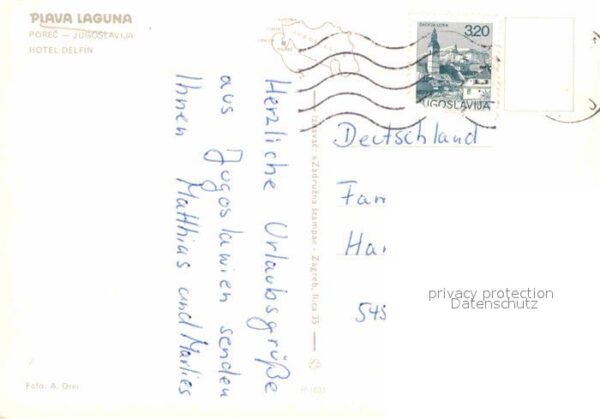 PLAVA LAGUNA
POREČ — JUGOSLAVIJA
HOTEL DELFIN
ŠKOFJA LOKA
3.20
JUGOSLAVIJA
Herzliche Urlaubsgrüße
aus Jugoslawien senden
Ihnen Matthias und Marlies
Izdavač: »Zadružna štampa« - Zagreb, Ilica 35
Deutschland
Fam
Ha
545
privacy protection
Datenschutz
Foto: A. Orel